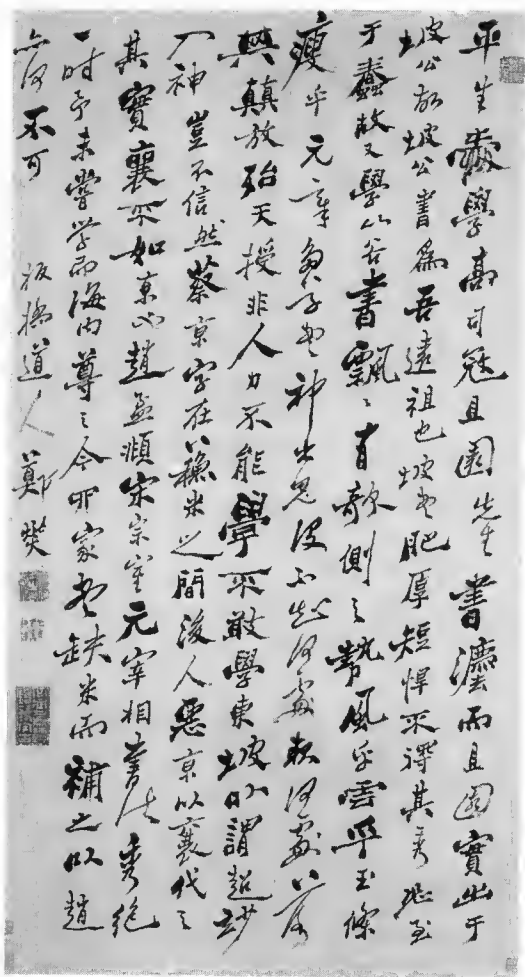 平生愛學高司寇且園先生書灋而且園實出于
坡公故坡公書為吾遠祖也坡書肥厚短悍不得其秀恐至
于蠢故又學山谷書飄〻有欹側之勢風乎雲乎玉條
瘦乎元章多草書神出鬼没不知何處起何處落
興顛放殆天授非人力不能學不敢學東坡以謂超妙
入神豈不信然蔡京字在蘓米之間後人惡京以襄代之
其實襄不如京也趙孟頫宋宗室元宰相書法秀絕
一時予未嘗學而海内尊之今四家書缺米而補之以趙
亦何不可 板橋道人鄭燮